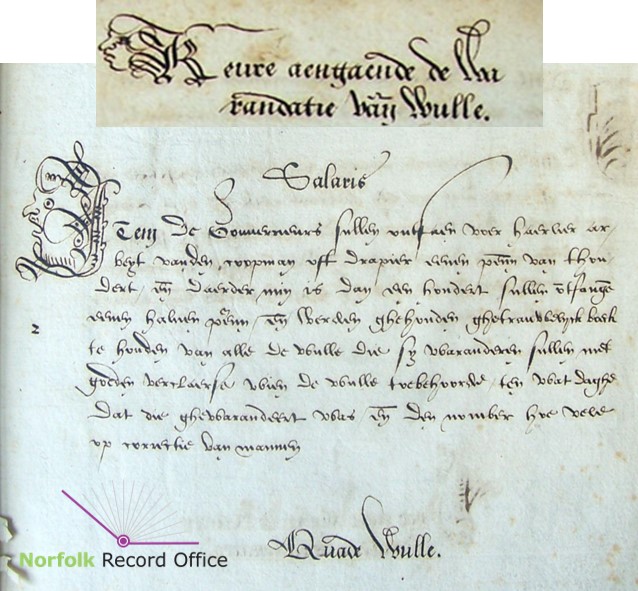 Keure aengaende de Wa
randatie vān Wulle.
Salaris
Item de Gouverneurs sullen ontfaen voer haerlier ar-
beyt vanden coopman oft drapier eenen penn van thon-
dert, en daerder min is dan een hondert sullen ontfange
eenen halven penn, en werden ghehouden ghetrauwelyck boeck
te houden van alle de wulle die sy waranderen sullen met
goeden verclaerse wien de wulle toebehoorde, ten wat daghe
2
dat die ghewarandeert was, en den nomber hoe vele
op correctie van mannen
Norfolk Record Office
Quade Wulle.